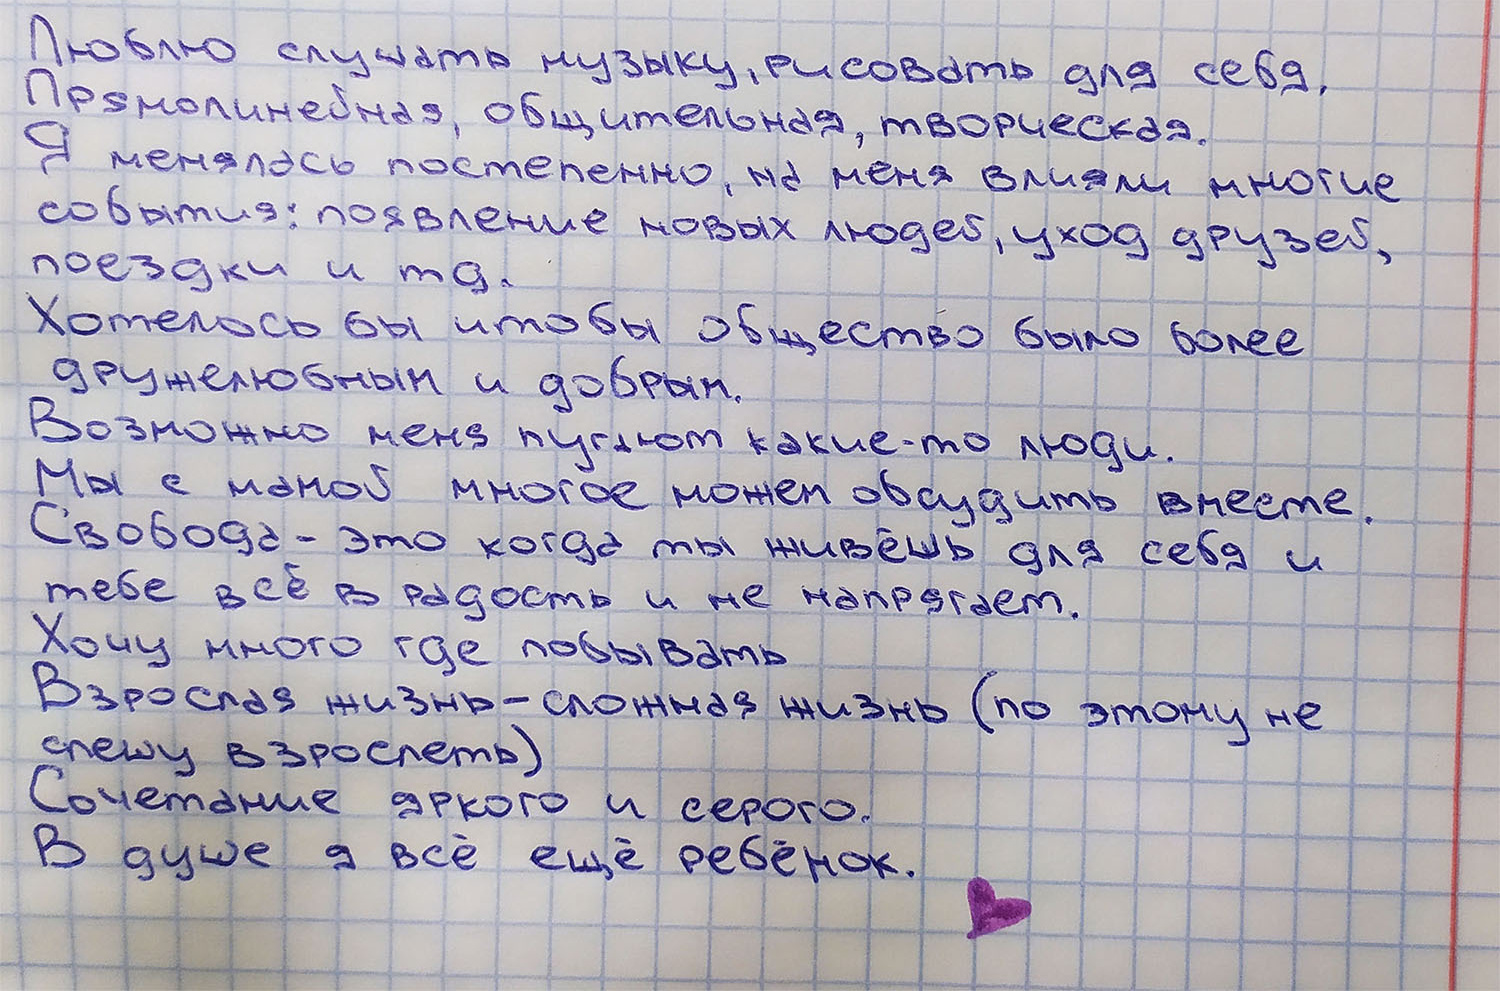 Люблю слушать музыку, рисовать для себя.
Прямолинейная, общительная, творческая.
Я менялась постепенно, на меня влияли многие
события: появление новых людей, уход друзей,
поездки и тд.
Хотелось бы чтобы общество было более
дружелюбным и добрым.
Возможно меня пугают какие-то люди.
Мы с мамой многое можем обсудить вместе.
Свобода - это когда ты живёшь для себя и
тебе всё в радость и не напрягает.
Хочу много где побывать
Взрослая жизнь - сложная жизнь (по этому не
спешу взрослеть)
Сочетание яркого и серого.
В душе я всё ещё ребёнок.